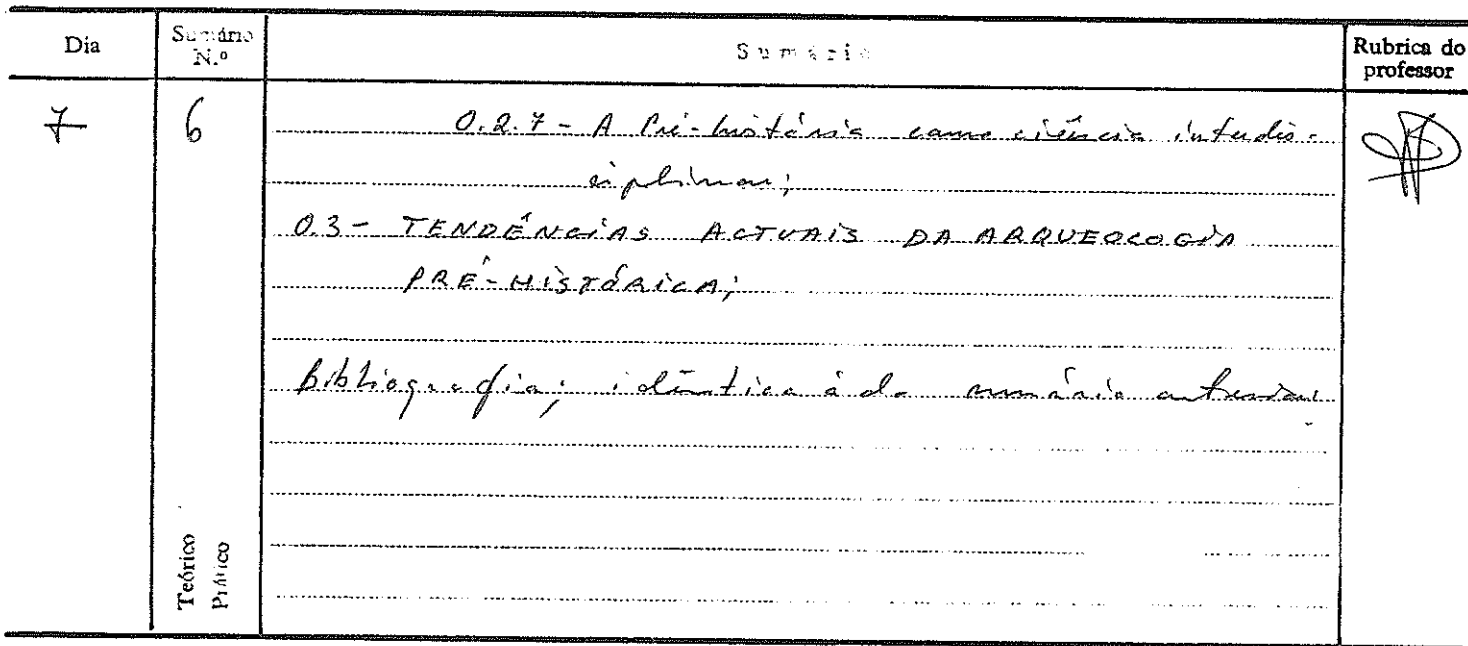 Dia
Sumário
N.º
Sumário
Rubrica do
professor
7
6
0.2.7 - A Pré-história como ciência interdis-
ciplinar;
0.3 - TENDÊNCIAS ACTUAIS DA ARQUEOLOGIA
PRÉ-HISTÓRICA;
Bibliografia: idêntica à do sumário anterior.
Teórico
Prático